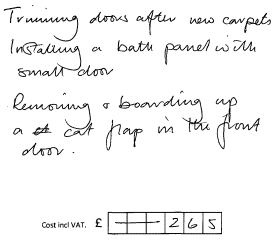 Trimming doors after new carpets
Installing a bath panel with
small door
Removing & boarding up
a cat flap in the front
door.
Cost incl VAT. £ 265